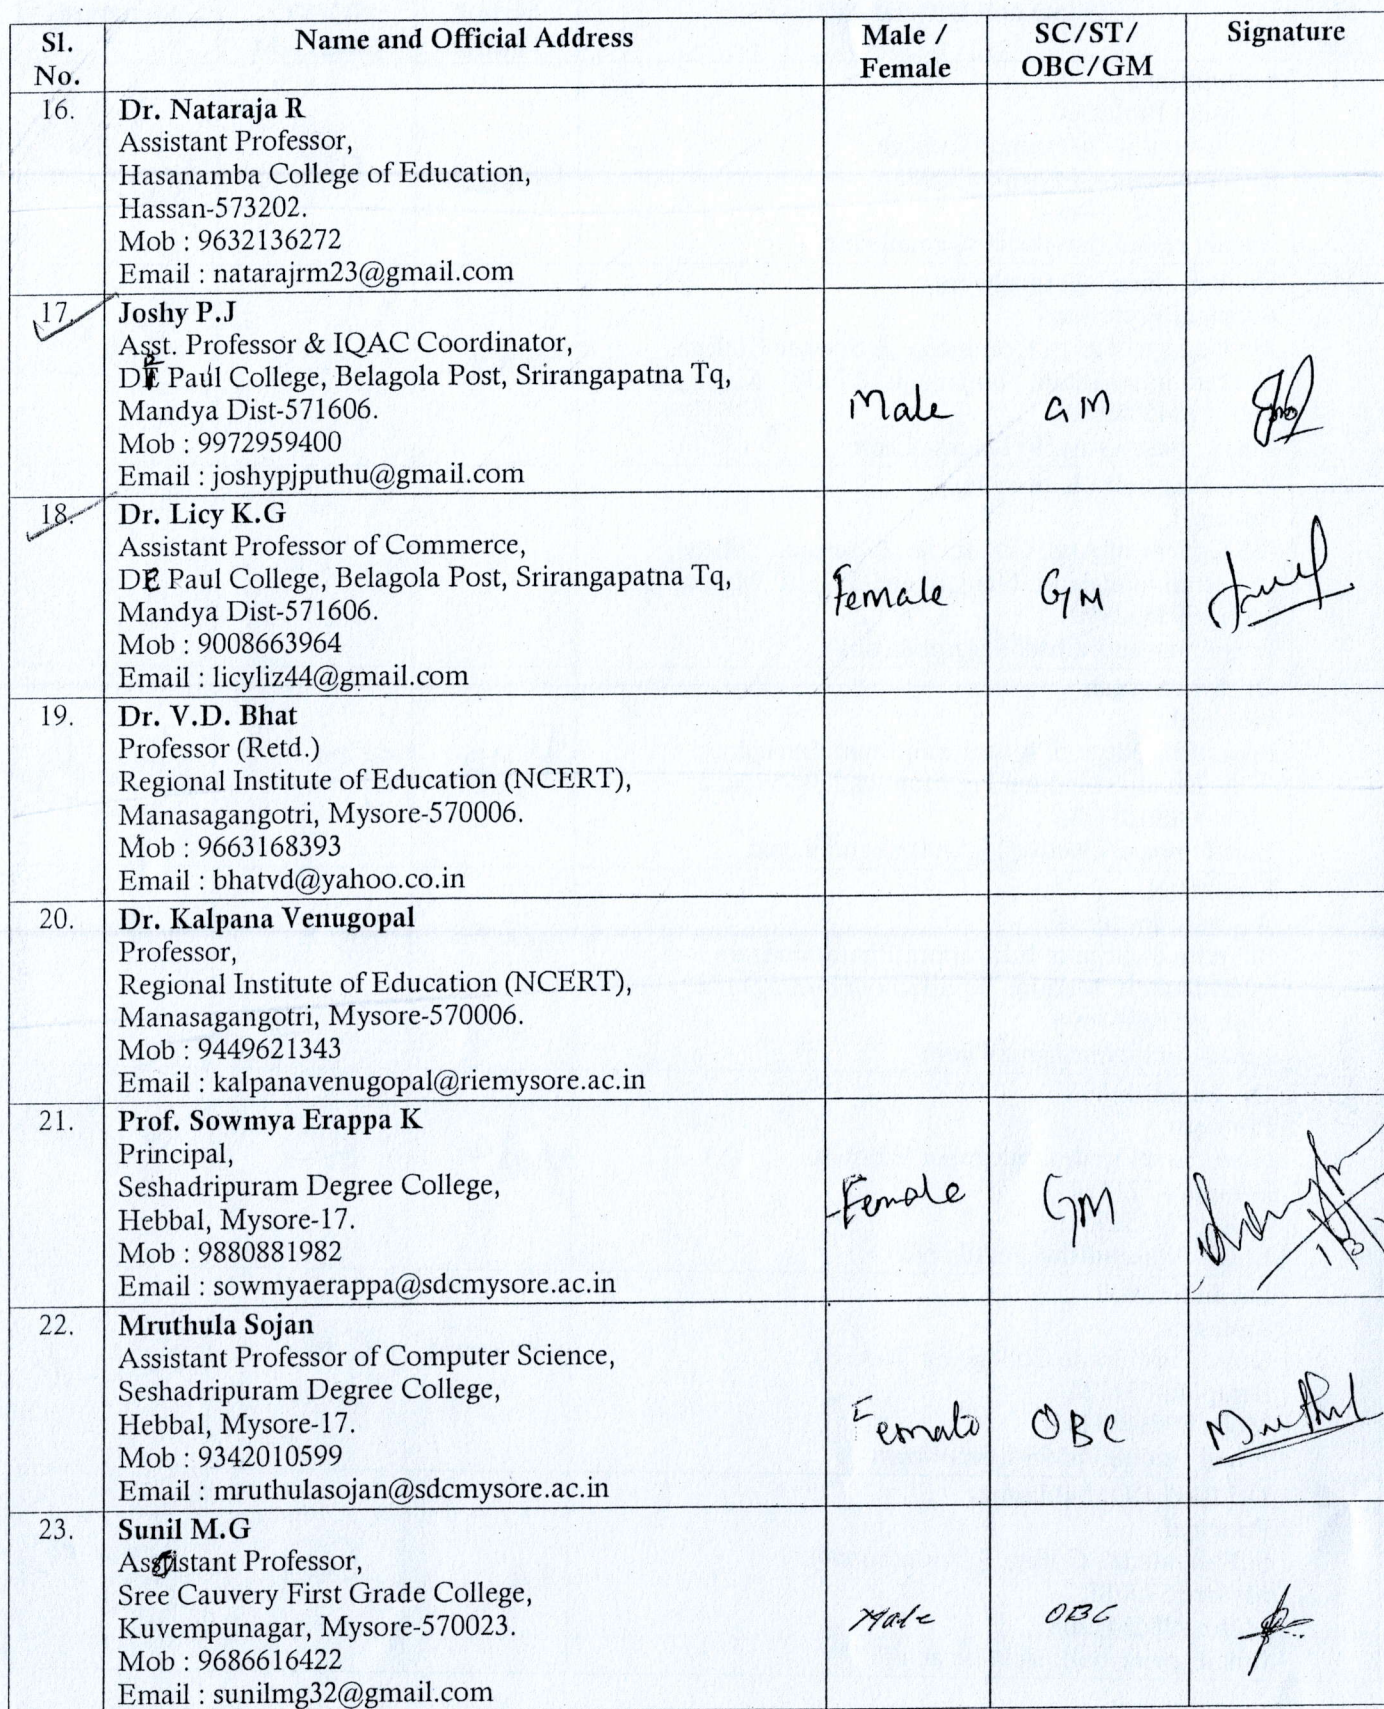 Sl. No. Name and Official Address Male / Female SC/ST/ OBC/GM Signature
16. Dr. Nataraja R
Assistant Professor,
Hasanamba College of Education,
Hassan-573202.
Mob : 9632136272
Email : natarajrm23@gmail.com
17. Joshy P.J
Asst. Professor & IQAC Coordinator,
DE Paul College, Belagola Post, Srirangapatna Tq,
Mandya Dist-571606. Male GM
Mob : 9972959400
Email : joshypjputhu@gmail.com
18. Dr. Licy K.G
Assistant Professor of Commerce,
DE Paul College, Belagola Post, Srirangapatna Tq,
Mandya Dist-571606. Female GM
Mob : 9008663964
Email : licyliz44@gmail.com
19. Dr. V.D. Bhat
Professor (Retd.)
Regional Institute of Education (NCERT),
Manasagangotri, Mysore-570006.
Mob : 9663168393
Email : bhatvd@yahoo.co.in
20. Dr. Kalpana Venugopal
Professor,
Regional Institute of Education (NCERT),
Manasagangotri, Mysore-570006.
Mob : 9449621343
Email : kalpanavenugopal@riemysore.ac.in
21. Prof. Sowmya Erappa K
Principal,
Seshadripuram Degree College, Female GM
Hebbal, Mysore-17.
Mob : 9880881982
Email : sowmyaerappa@sdcmysore.ac.in
22. Mruthula Sojan
Assistant Professor of Computer Science,
Seshadripuram Degree College,
Hebbal, Mysore-17. Female OBC
Mob : 9342010599
Email : mruthulasojan@sdcmysore.ac.in
23. Sunil M.G
Assistant Professor,
Sree Cauvery First Grade College,
Kuvempunagar, Mysore-570023. Male OBC
Mob : 9686616422
Email : sunilmg32@gmail.com